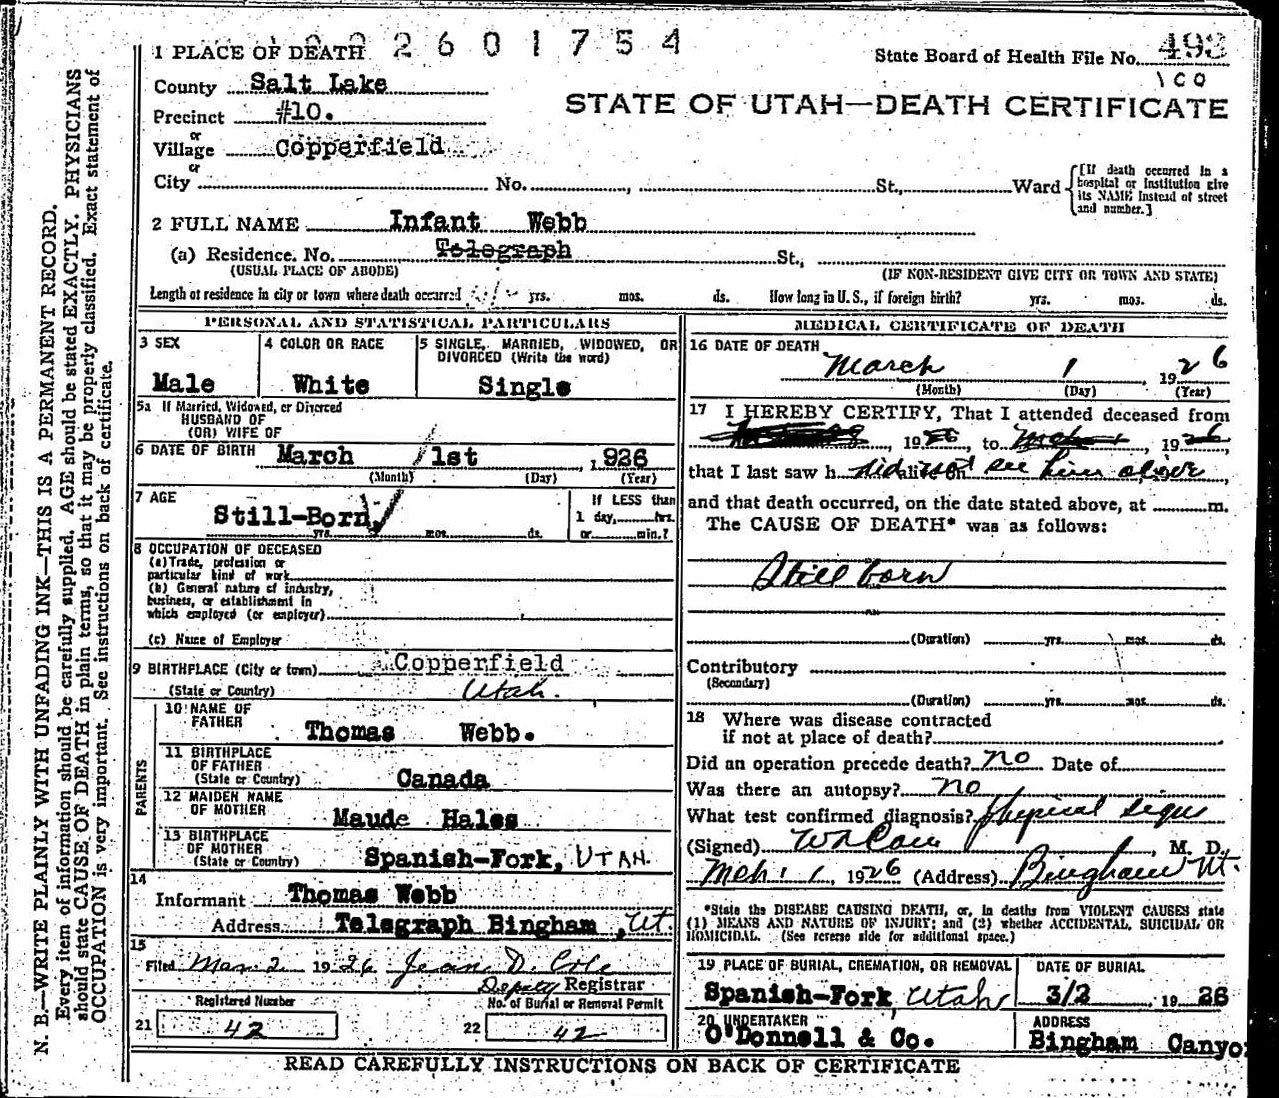 2601754
1 PLACE OF DEATH
State Board of Health File No. 493
County Salt Lake
100
Precinct #10.
STATE OF UTAH—DEATH CERTIFICATE
or
Village Copperfield
or
City No. , St., Ward
[If death occurred in a hospital or institution give its NAME instead of street and number.]
2 FULL NAME Infant Webb
(a) Residence. No. Telegraph St.,
(USUAL PLACE OF ABODE) (IF NON-RESIDENT GIVE CITY OR TOWN AND STATE)
Length of residence in city or town where death occurred yrs. mos. ds. How long in U. S., if foreign birth? yrs. mos. ds.
PERSONAL AND STATISTICAL PARTICULARS
3 SEX
Male
4 COLOR OR RACE
White
5 SINGLE, MARRIED, WIDOWED, OR DIVORCED (Write the word)
Single
5a If Married, Widowed, or Divorced
HUSBAND OF
(OR) WIFE OF
6 DATE OF BIRTH March 1st, 1926
(Month) (Day) (Year)
7 AGE
Still-Born,
yrs. mos. ds.
If LESS than
1 day, hrs.
or min.?
8 OCCUPATION OF DECEASED
(a) Trade, profession or
particular kind of work
(b) General nature of industry,
business, or establishment in
which employed (or employer)
(c) Name of Employer
9 BIRTHPLACE (City or town) Copperfield
(State or Country) Utah.
PARENTS
10 NAME OF
FATHER Thomas Webb.
11 BIRTHPLACE
OF FATHER
(State or Country) Canada
12 MAIDEN NAME
OF MOTHER Maude Hales
13 BIRTHPLACE
OF MOTHER
(State or Country) Spanish-Fork, UTAH.
14
Informant Thomas Webb
Address Telegraph Bingham, Ut.
15
Filed Mar. 2 1926 Jean D. Cole
Deputy Registrar
Registered Number
21 42
No. of Burial or Removal Permit
22 42
MEDICAL CERTIFICATE OF DEATH
16 DATE OF DEATH
March 1, 1926
(Month) (Day) (Year)
17 I HEREBY CERTIFY, That I attended deceased from
, 1926, to Mch 1, 1926,
that I last saw h alive on did not see him alive,
and that death occurred, on the date stated above, at m.
The CAUSE OF DEATH* was as follows:
Still born
(Duration) yrs. mos. ds.
Contributory
(Secondary)
(Duration) yrs. mos. ds.
18 Where was disease contracted
if not at place of death?
Did an operation precede death? no Date of
Was there an autopsy? no
What test confirmed diagnosis? physical signs
(Signed) , M. D.
Mch. 1, 1926 (Address) Bingham Ut.
*State the DISEASE CAUSING DEATH, or, in deaths from VIOLENT CAUSES state
(1) MEANS AND NATURE OF INJURY; and (2) whether ACCIDENTAL, SUICIDAL OR
HOMICIDAL. (See reverse side for additional space.)
19 PLACE OF BURIAL, CREMATION, OR REMOVAL
Spanish-Fork Utah
DATE OF BURIAL
3/2, 1926
20 UNDERTAKER
O'Donnell & Co.
ADDRESS
Bingham Canyo
READ CAREFULLY INSTRUCTIONS ON BACK OF CERTIFICATE
N. B.—WRITE PLAINLY WITH UNFADING INK—THIS IS A PERMANENT RECORD.
Every item of information should be carefully supplied. AGE should be stated EXACTLY. PHYSICIANS
should state CAUSE OF DEATH in plain terms, so that it may be properly classified. Exact statement of
OCCUPATION is very important. See instructions on back of certificate.